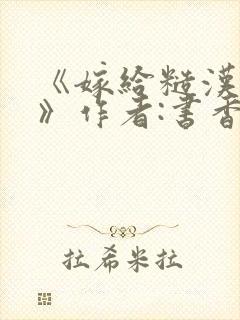 《嫁给糙漢
》作者:書香
拉希米拉